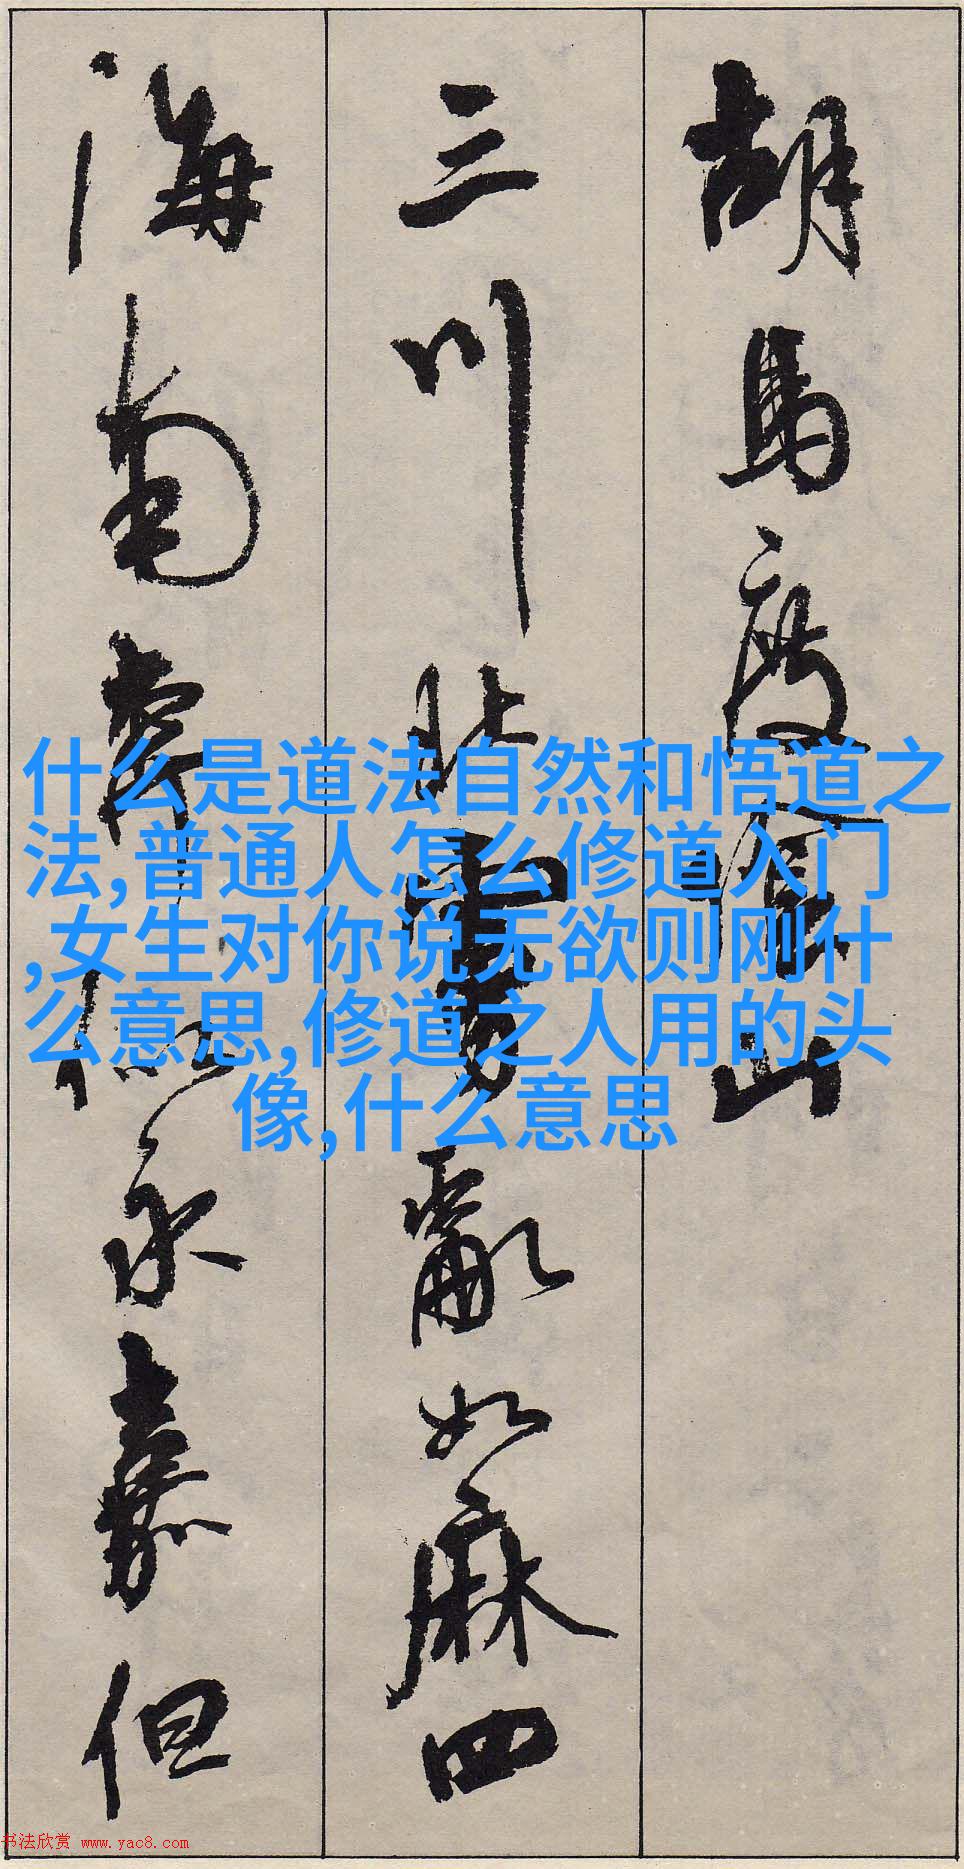 胡馬度陰山
三川北虜亂如麻四
海南奔似永嘉但
什么是道法自然和悟道之
法,普通人怎么修道入门
,女生对你说无欲则刚什
么意思,修道之人用的头
像,什么意思
书法欣赏 www.yac8.com